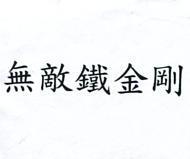 無敵鐵金剛